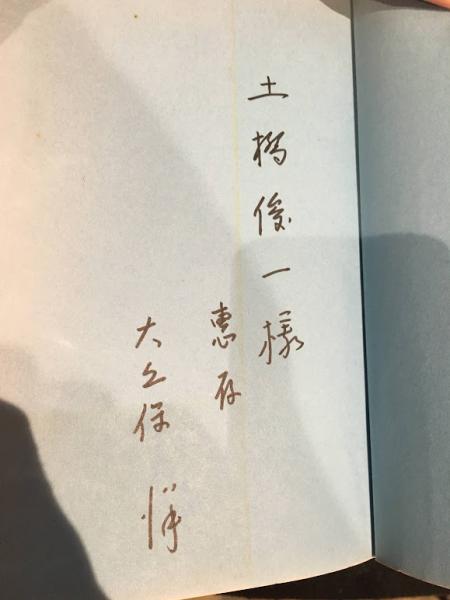 土橋俊一様
惠存
大久保